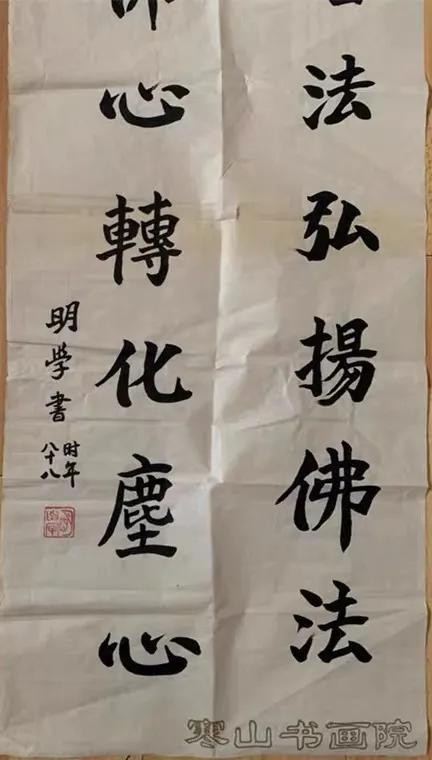 法弘揚佛法
佛心轉化塵心
明學書
时年
八十八
寒山书画院